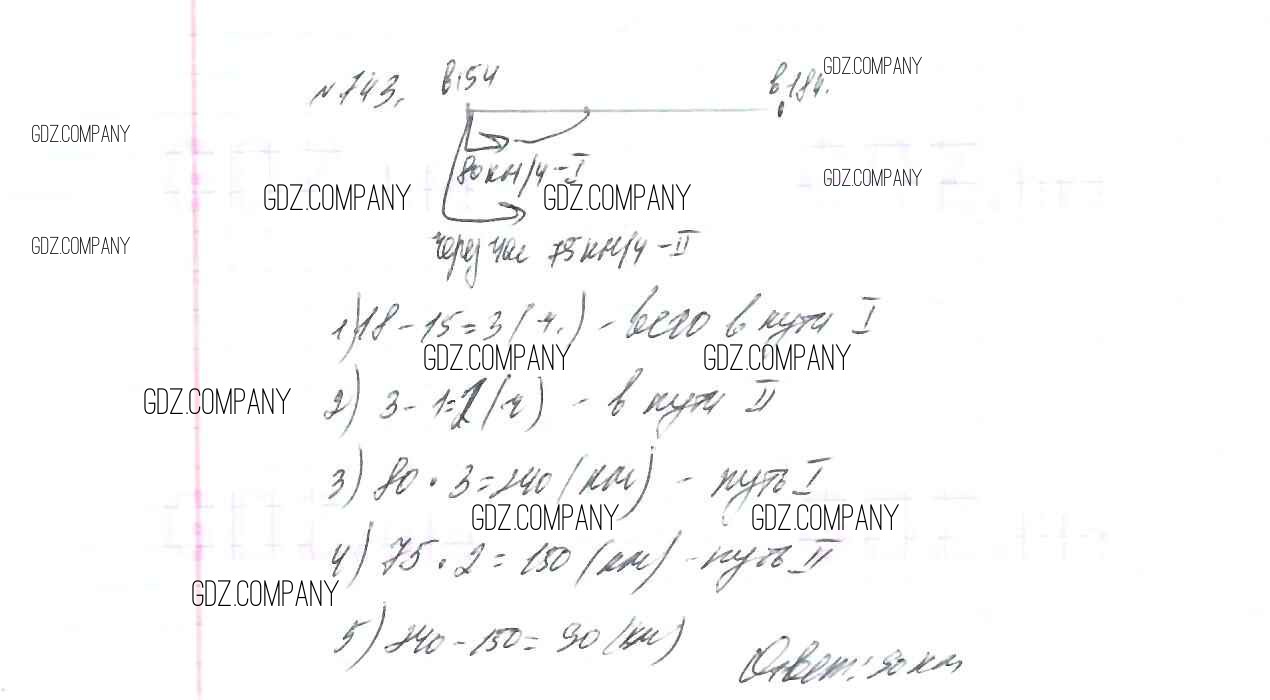 № 743. в 15ч в 18ч.
GDZ.COMPANY
GDZ.COMPANY
80 км/ч - I
GDZ.COMPANY
GDZ.COMPANY GDZ.COMPANY
GDZ.COMPANY
через час 75 км/ч - II
1) 18 - 15 = 3 (ч.) - всего в пути I
GDZ.COMPANY GDZ.COMPANY
2) 3 - 1 = 2 (ч) - в пути II
GDZ.COMPANY
3) 80 · 3 = 240 (км) - путь I
GDZ.COMPANY GDZ.COMPANY
4) 75 · 2 = 150 (км) - путь II
GDZ.COMPANY
5) 240 - 150 = 90 (км)
Ответ: 90 км